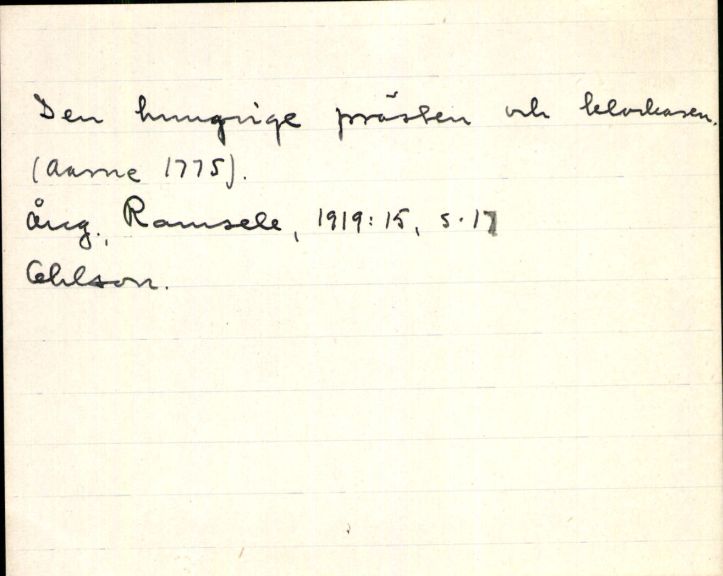 Den hungrige prästen och klockaren.
(Aarne 1775).
Ång., Ramsele, 1919:15, s. 17
Ohlson.